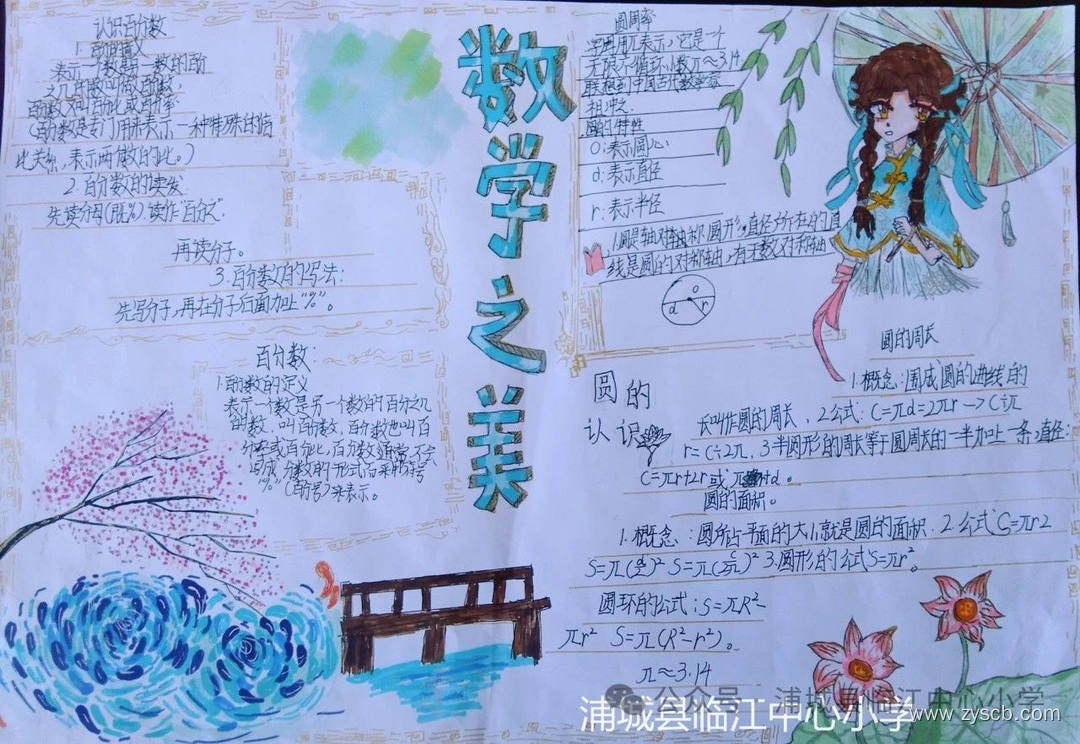 认识百分数
1.百分数的意义
表示一个数是另一个数的百分
之几的数叫做百分数.
百分数又叫百分比或百分率
(百分数是专门用来表示一种特殊的倍
比关系,表示两个数的比。)
2.百分数的读发
先读分母(既%)读作"百分之".
再读分子.
3.百分数的写法:
先写分子,再在分子后面加上"%"。
百分数:
1.百分数的定义
表示一个数是另一个数的百分之几
的数,叫百分数,百分数也叫百
分率或百分比,百分数通常不会
写成分数的形式而采用符号
"%"(百分号)来表示。
数学之美
圆周率
字母用π表示,它是一个
无限不循环小数π≈3.14
联想到中国古代数学家
祖冲之
圆的特性
O:表示圆心
d:表示直径
r:表示半径
1.圆是轴对称图形,直径所在的直
线是圆的对称轴,有无数对称轴
o
d r
圆的
认识
圆的周长
1.概念:围成圆的曲线的
长叫作圆的周长,2.公式:C=πd=2πr→C÷π
r=C÷2π,3.半圆形的周长等于圆周长的一半加上一条直径.
C=πr+2r或π +d。
圆的面积。
1.概念:圆所占平面的大小就是圆的面积.2.公式C=πr2
S=π(d/2)² S=π(C/2π)² 3.圆形的公式S=πr²。
圆环的公式:S=πR²-
πr² S=π(R²-r²)。
π≈3.14
公众号·浦城县临江中心小学
浦城县临江中心小学
www.zyscb.com